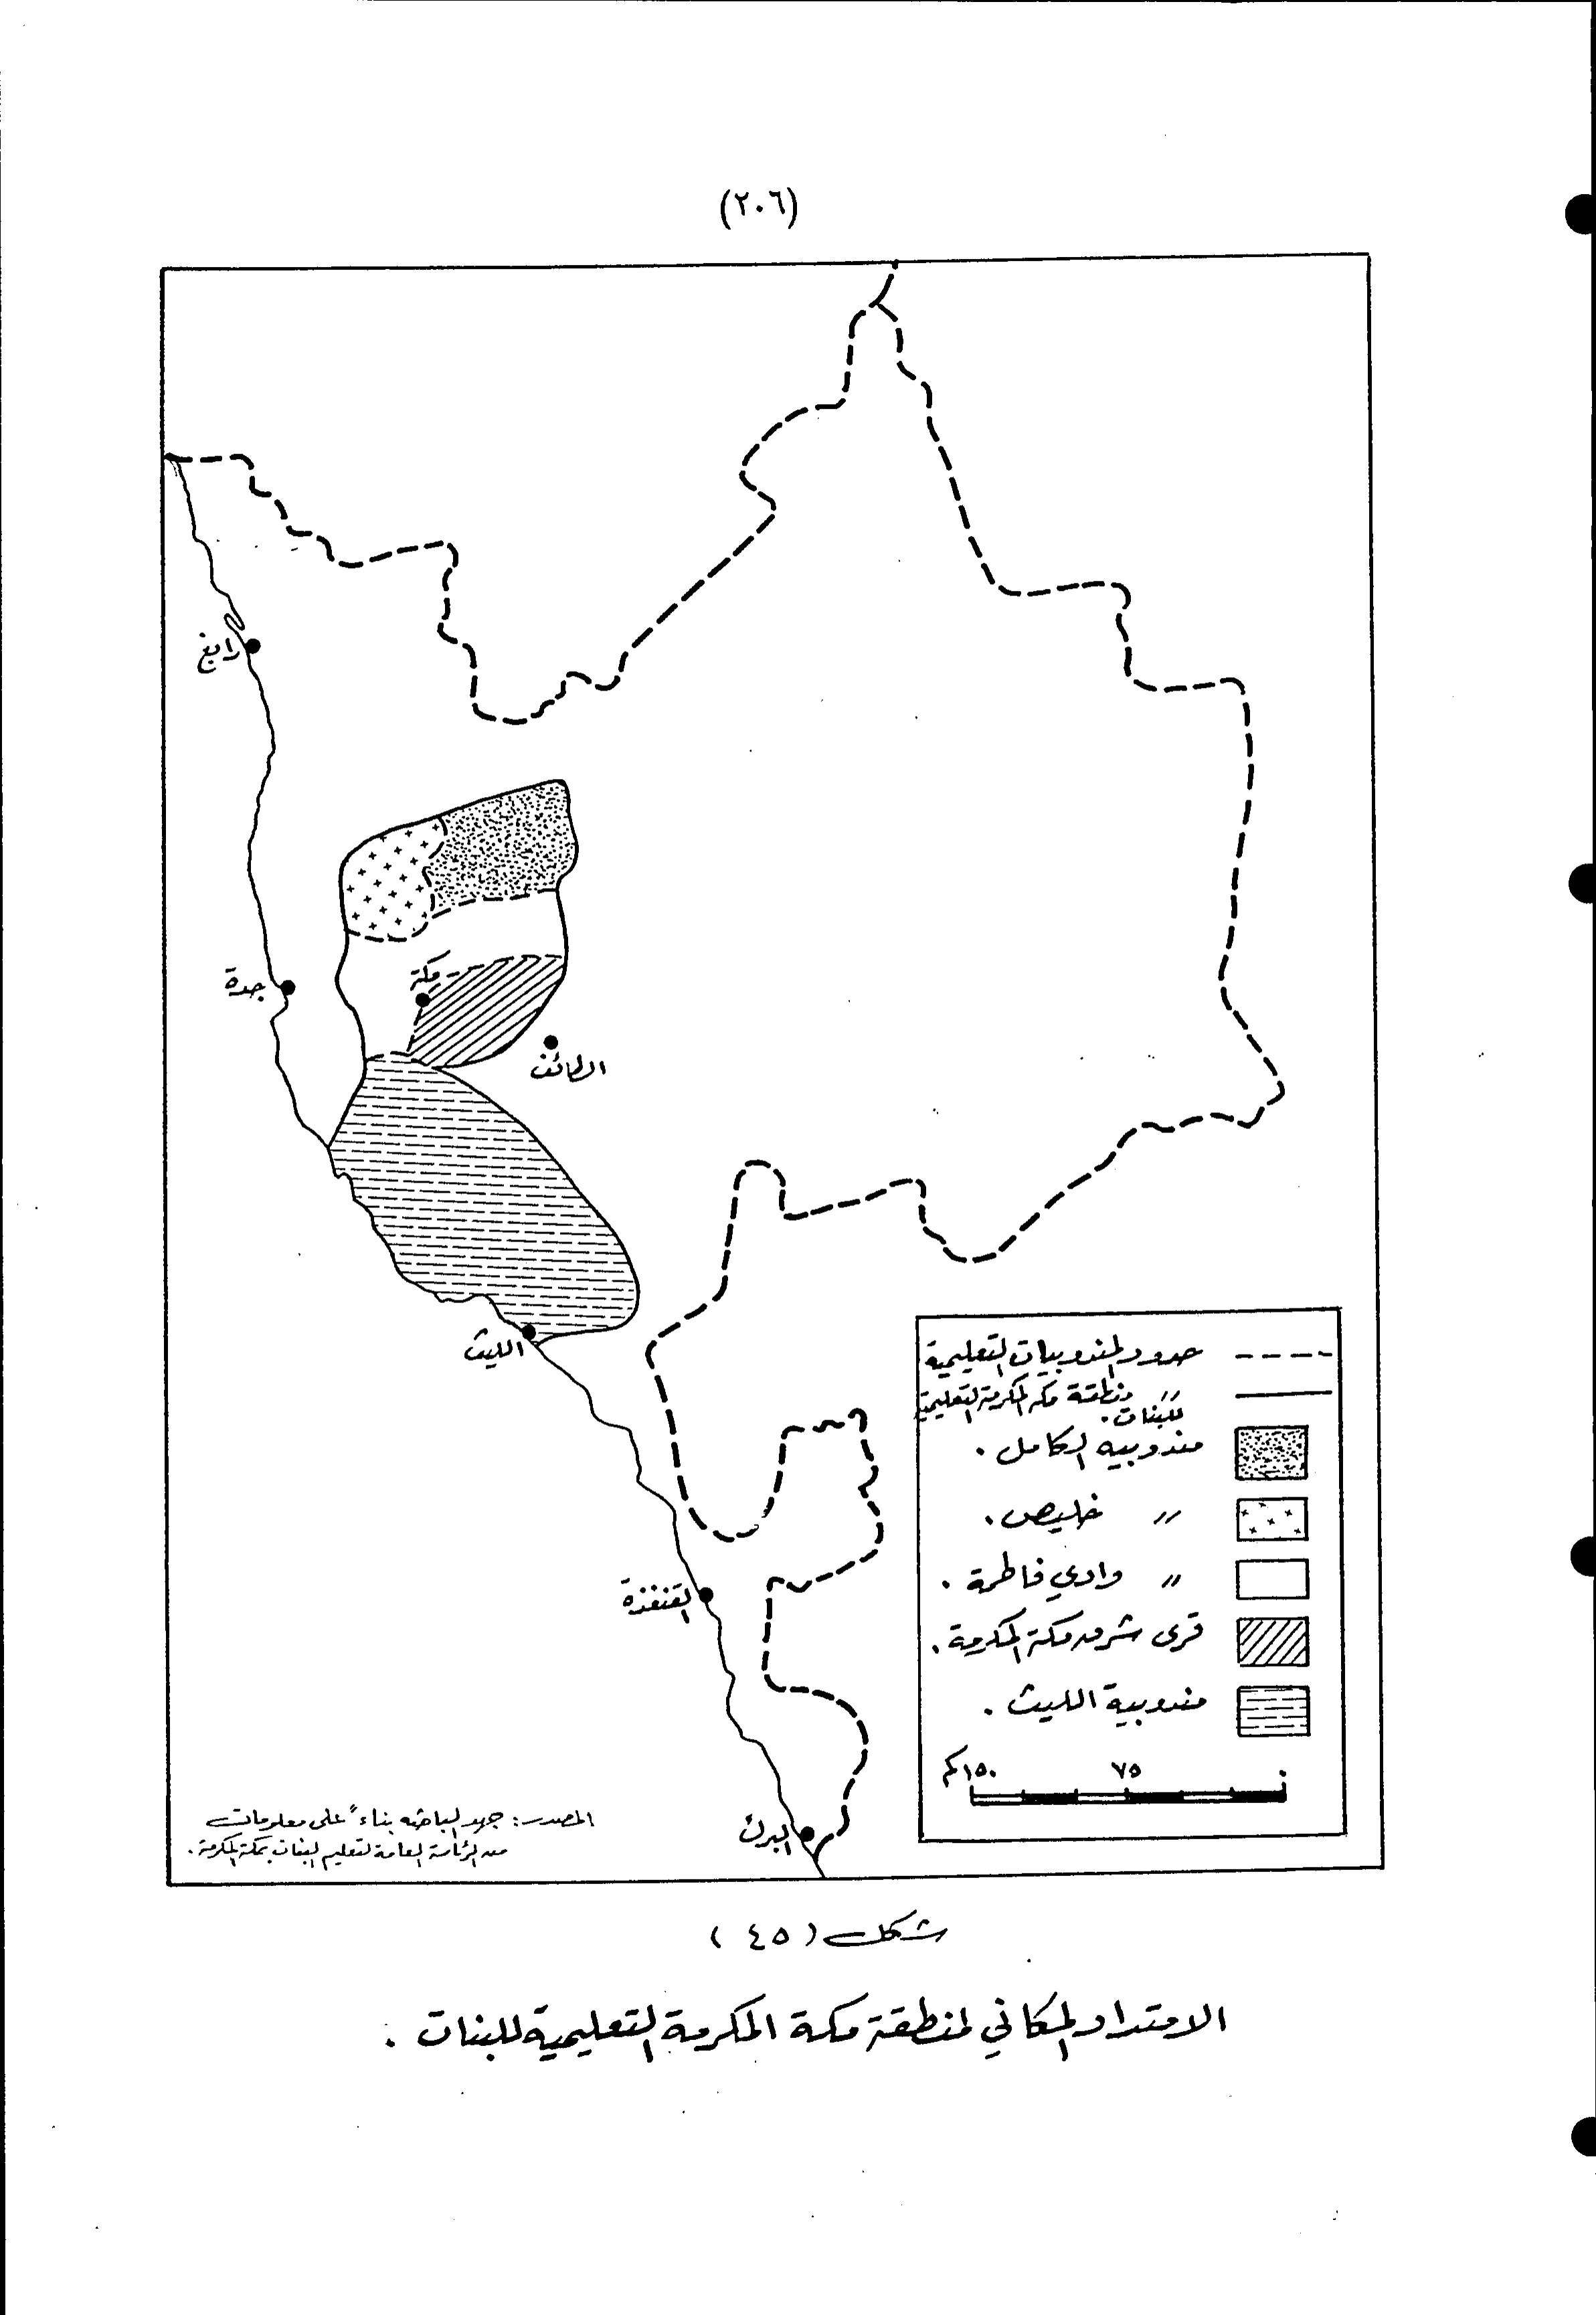 (٢٠٦)
رابغ
جدة
مكة
الطائف
الليث
القنفذة
البرك
حدود المندوبيات التعليمية
〃 منطقة مكه المكرمة التعليمية
للبنات.
مندوبيه الكامل .
〃 خليص .
〃 وادي فاطمة .
قرى شرق مكة المكرمة .
مندوبية الليث .
٠ ٧٥ ١٥٠ كم
المصدر : جهد الباحثه بناءً على معلومات
من الرئاسة العامة لتعليم البنات بمكة المكرمة .
شكل ( ٤٥ )
الامتداد المكاني لمنطقة مكة المكرمة التعليمية للبنات .